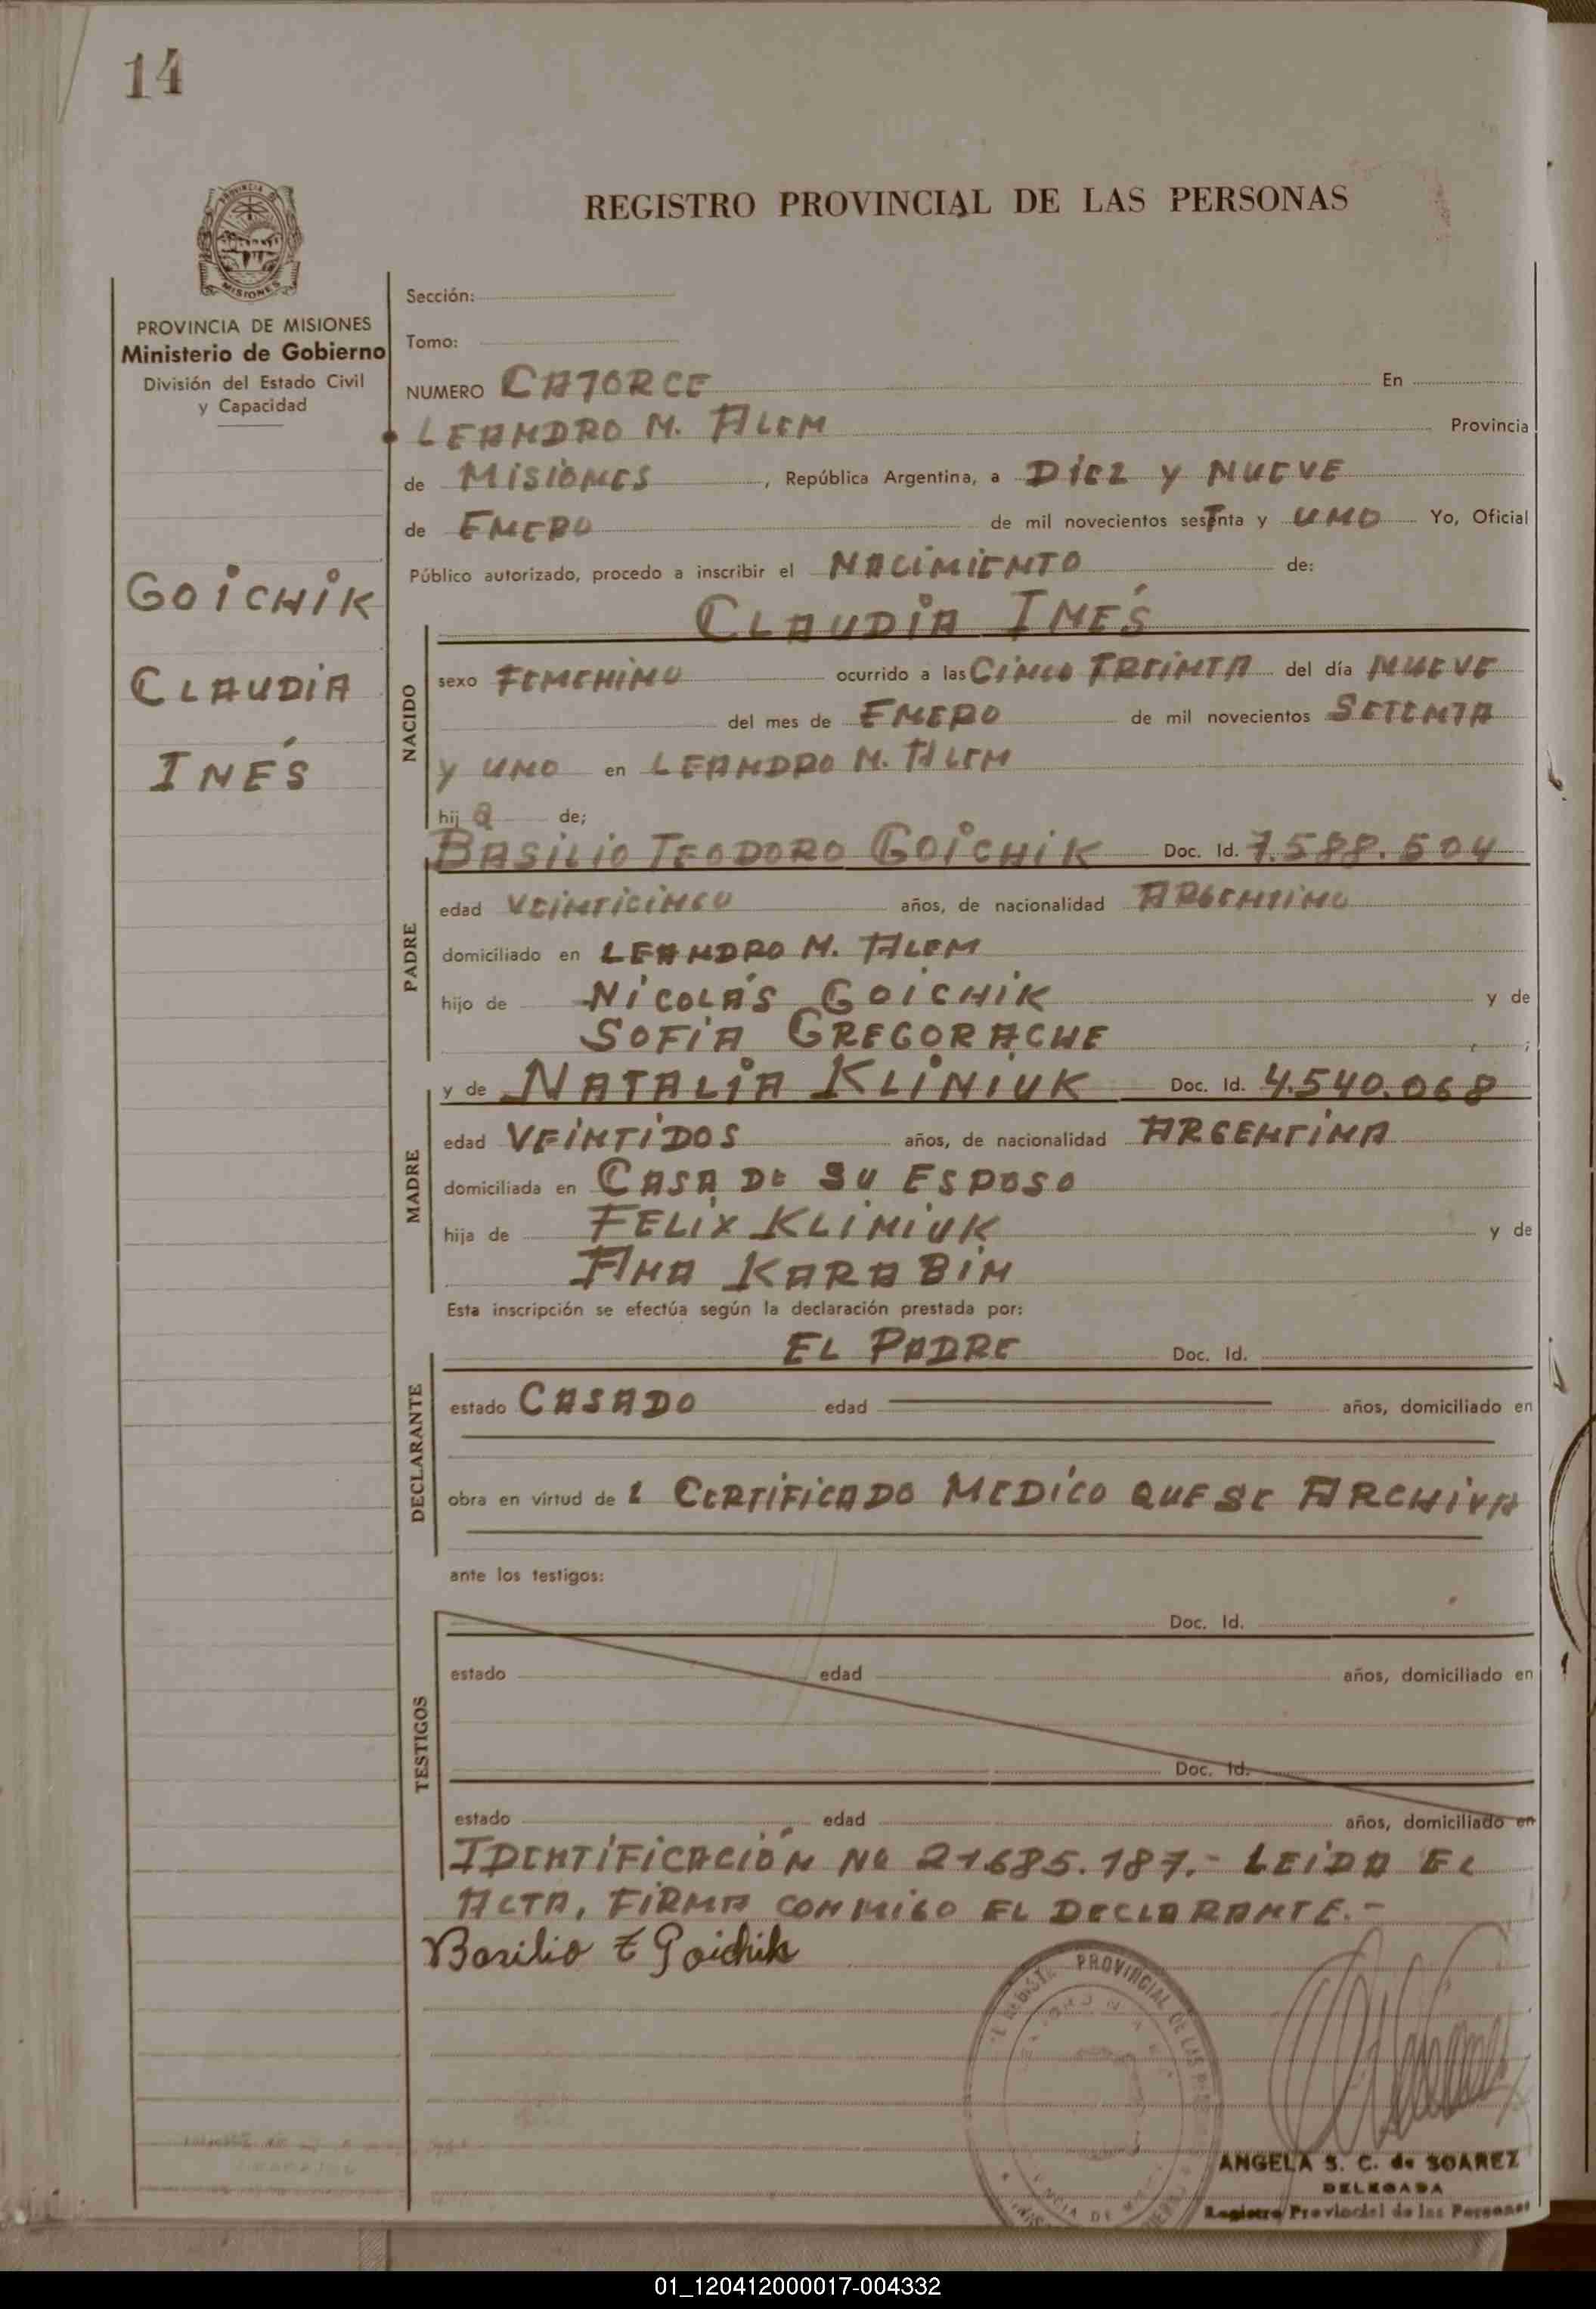 14
REGISTRO PROVINCIAL DE LAS PERSONAS
MISIONES
PROVINCIA DE MISIONES
Ministerio de Gobierno
División del Estado Civil
y Capacidad
GOICHIK
CLAUDIA
INÉS
Sección:
Tomo:
NUMERO CATORCE En
LEANDRO M. ALEM Provincia
de MISIONES, República Argentina, a DIEZ Y NUEVE
de ENERO de mil novecientos sesTnta y UNO Yo, Oficial
Público autorizado, procedo a inscribir el NACIMIENTO de:
CLAUDIA INÉS
NACIDO
sexo FEMENINO ocurrido a las CINCO TREINTA del día NUEVE
del mes de ENERO de mil novecientos SETENTA
Y UNO en LEANDRO M. ALEM
hij a de;
BASILIO TEODORO GOICHIK Doc. Id. 7.588.504
PADRE
edad VEINTICINCO años, de nacionalidad ARGENTINO
domiciliado en LEANDRO M. ALEM
hijo de NICOLÁS GOICHIK y de
SOFIA GREGORACHE ;
y de NATALIA KLINIUK Doc. Id. 4.540.068
MADRE
edad VEINTIDOS años, de nacionalidad ARGENTINA
domiciliada en CASA DE SU ESPOSO
hija de FELIX KLINIUK y de
ANA KARABIN
Esta inscripción se efectúa según la declaración prestada por:
EL PADRE Doc. Id.
DECLARANTE
estado CASADO edad años, domiciliado en
obra en virtud de L CERTIFICADO MEDICO QUE SE ARCHIVA
ante los testigos:
TESTIGOS
Doc. Id.
estado edad años, domiciliado en
Doc. Id.
estado edad años, domiciliado en
IDENTIFICACIÓN No 21.685.187.- LEIDA EL
ACTA, FIRMA CONMIGO EL DECLARANTE.-
Basilio T Goichik
PROVINCIAL DE LAS
ANGELA S. C. de SOAREZ
DELEGADA
Registro Provincial de las Personas
01_120412000017-004332